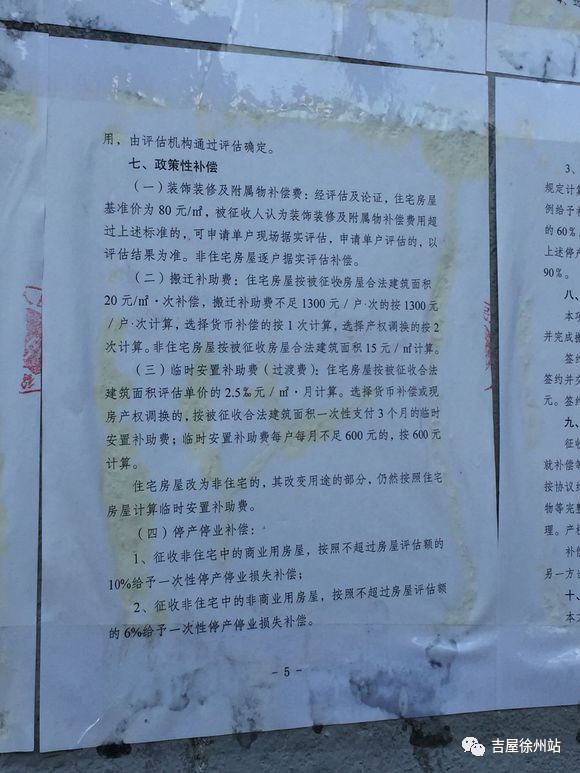 用，由评估机构通过评估确定。
七、政策性补偿
（一）装饰装修及附属物补偿费：经评估及论证，住宅房屋
基准价为 80 元/㎡，被征收人认为装饰装修及附属物补偿费用超
过上述标准的，可申请单户现场据实评估，申请单户评估的，以
评估结果为准。非住宅房屋逐户据实评估补偿。
（二）搬迁补助费：住宅房屋按被征收房屋合法建筑面积
20 元/㎡·次补偿，搬迁补助费不足 1300 元／户·次的按 1300 元
／户·次计算，选择货币补偿的按 1 次计算，选择产权调换的按 2
次计算。非住宅房屋按被征收房屋合法建筑面积 15 元／㎡计算。
（三）临时安置补助费（过渡费）：住宅房屋按被征收合法
建筑面积评估单价的 2.5‰元／㎡·月计算。选择货币补偿或现
房产权调换的，按被征收合法建筑面积一次性支付 3 个月的临时
安置补助费；临时安置补助费每户每月不足 600 元的，按 600 元
计算。
住宅房屋改为非住宅的，其改变用途的部分，仍然按照住宅
房屋计算临时安置补助费。
（四）停产停业补偿：
1、征收非住宅中的商业用房屋，按照不超过房屋评估额的
10%给予一次性停产停业损失补偿；
2、征收非住宅中的非商业用房屋，按照不超过房屋评估额
的 6%给予一次性停产停业损失补偿。
- 5 -
3、
规定计算
例给予补
的 60%。
上述停产
90%。
八、
本项
并完成搬
签约
签约并交
元。签约
九、
征收
就补偿等
按协议约
物等完整
理。产权
补偿
另一方当
十、
本方
吉屋徐州站